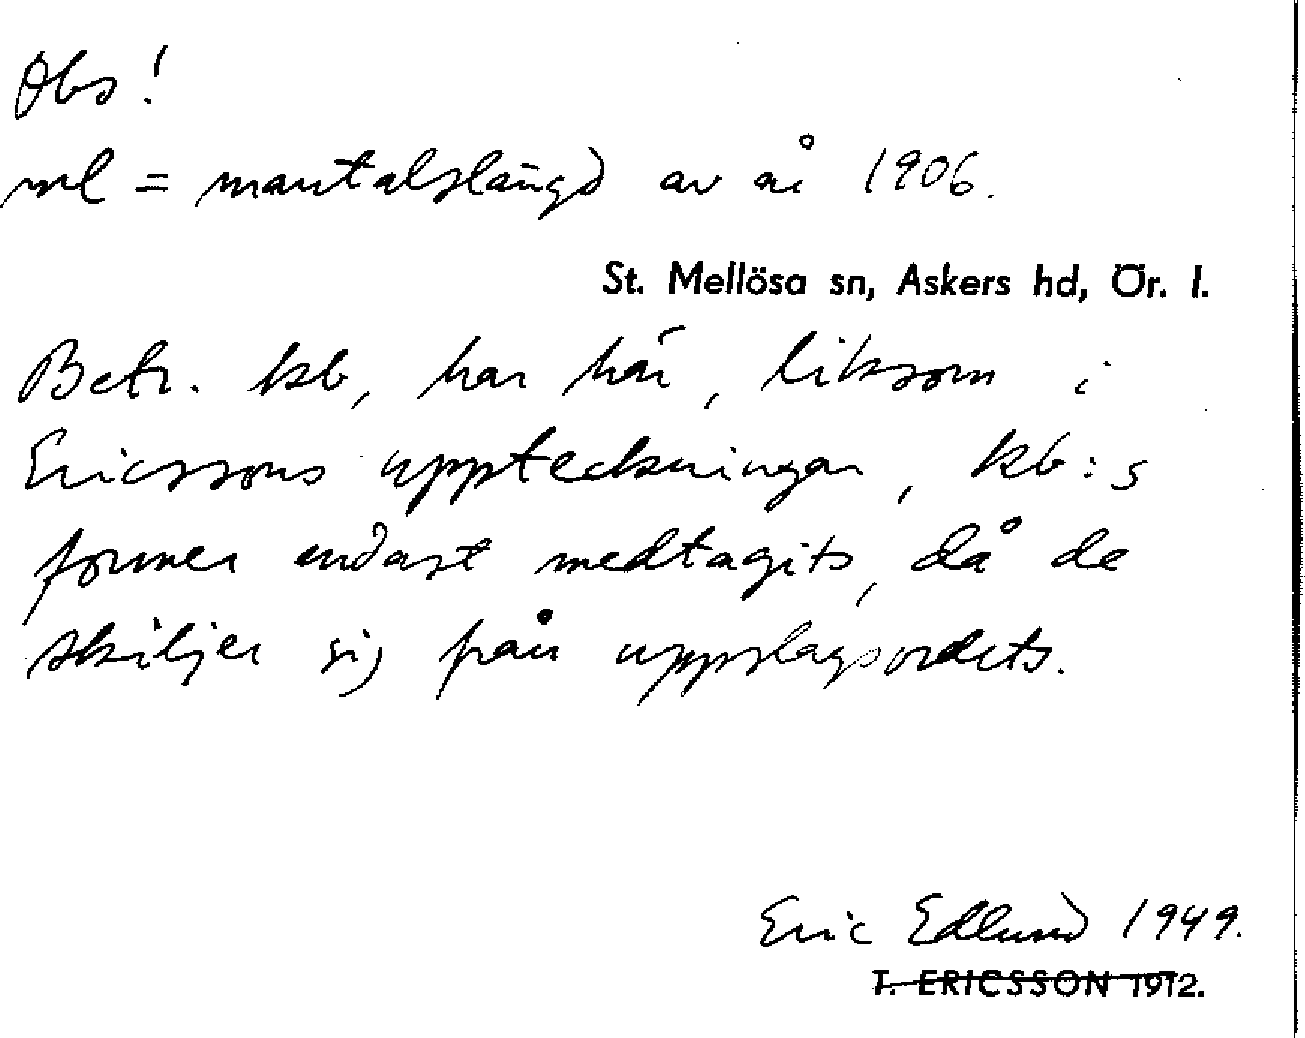 Obs!
ml = mantalslängd av år 1906.
St. Mellösa sn, Askers hd, Ör. l.
Betr. kb, har här, liksom i
Ericssons uppteckningar, kb:s
former endast medtagits, då de
skiljer sig från uppslagsordets.
Eric Edlund 1949.
T. ERICSSON 1912.